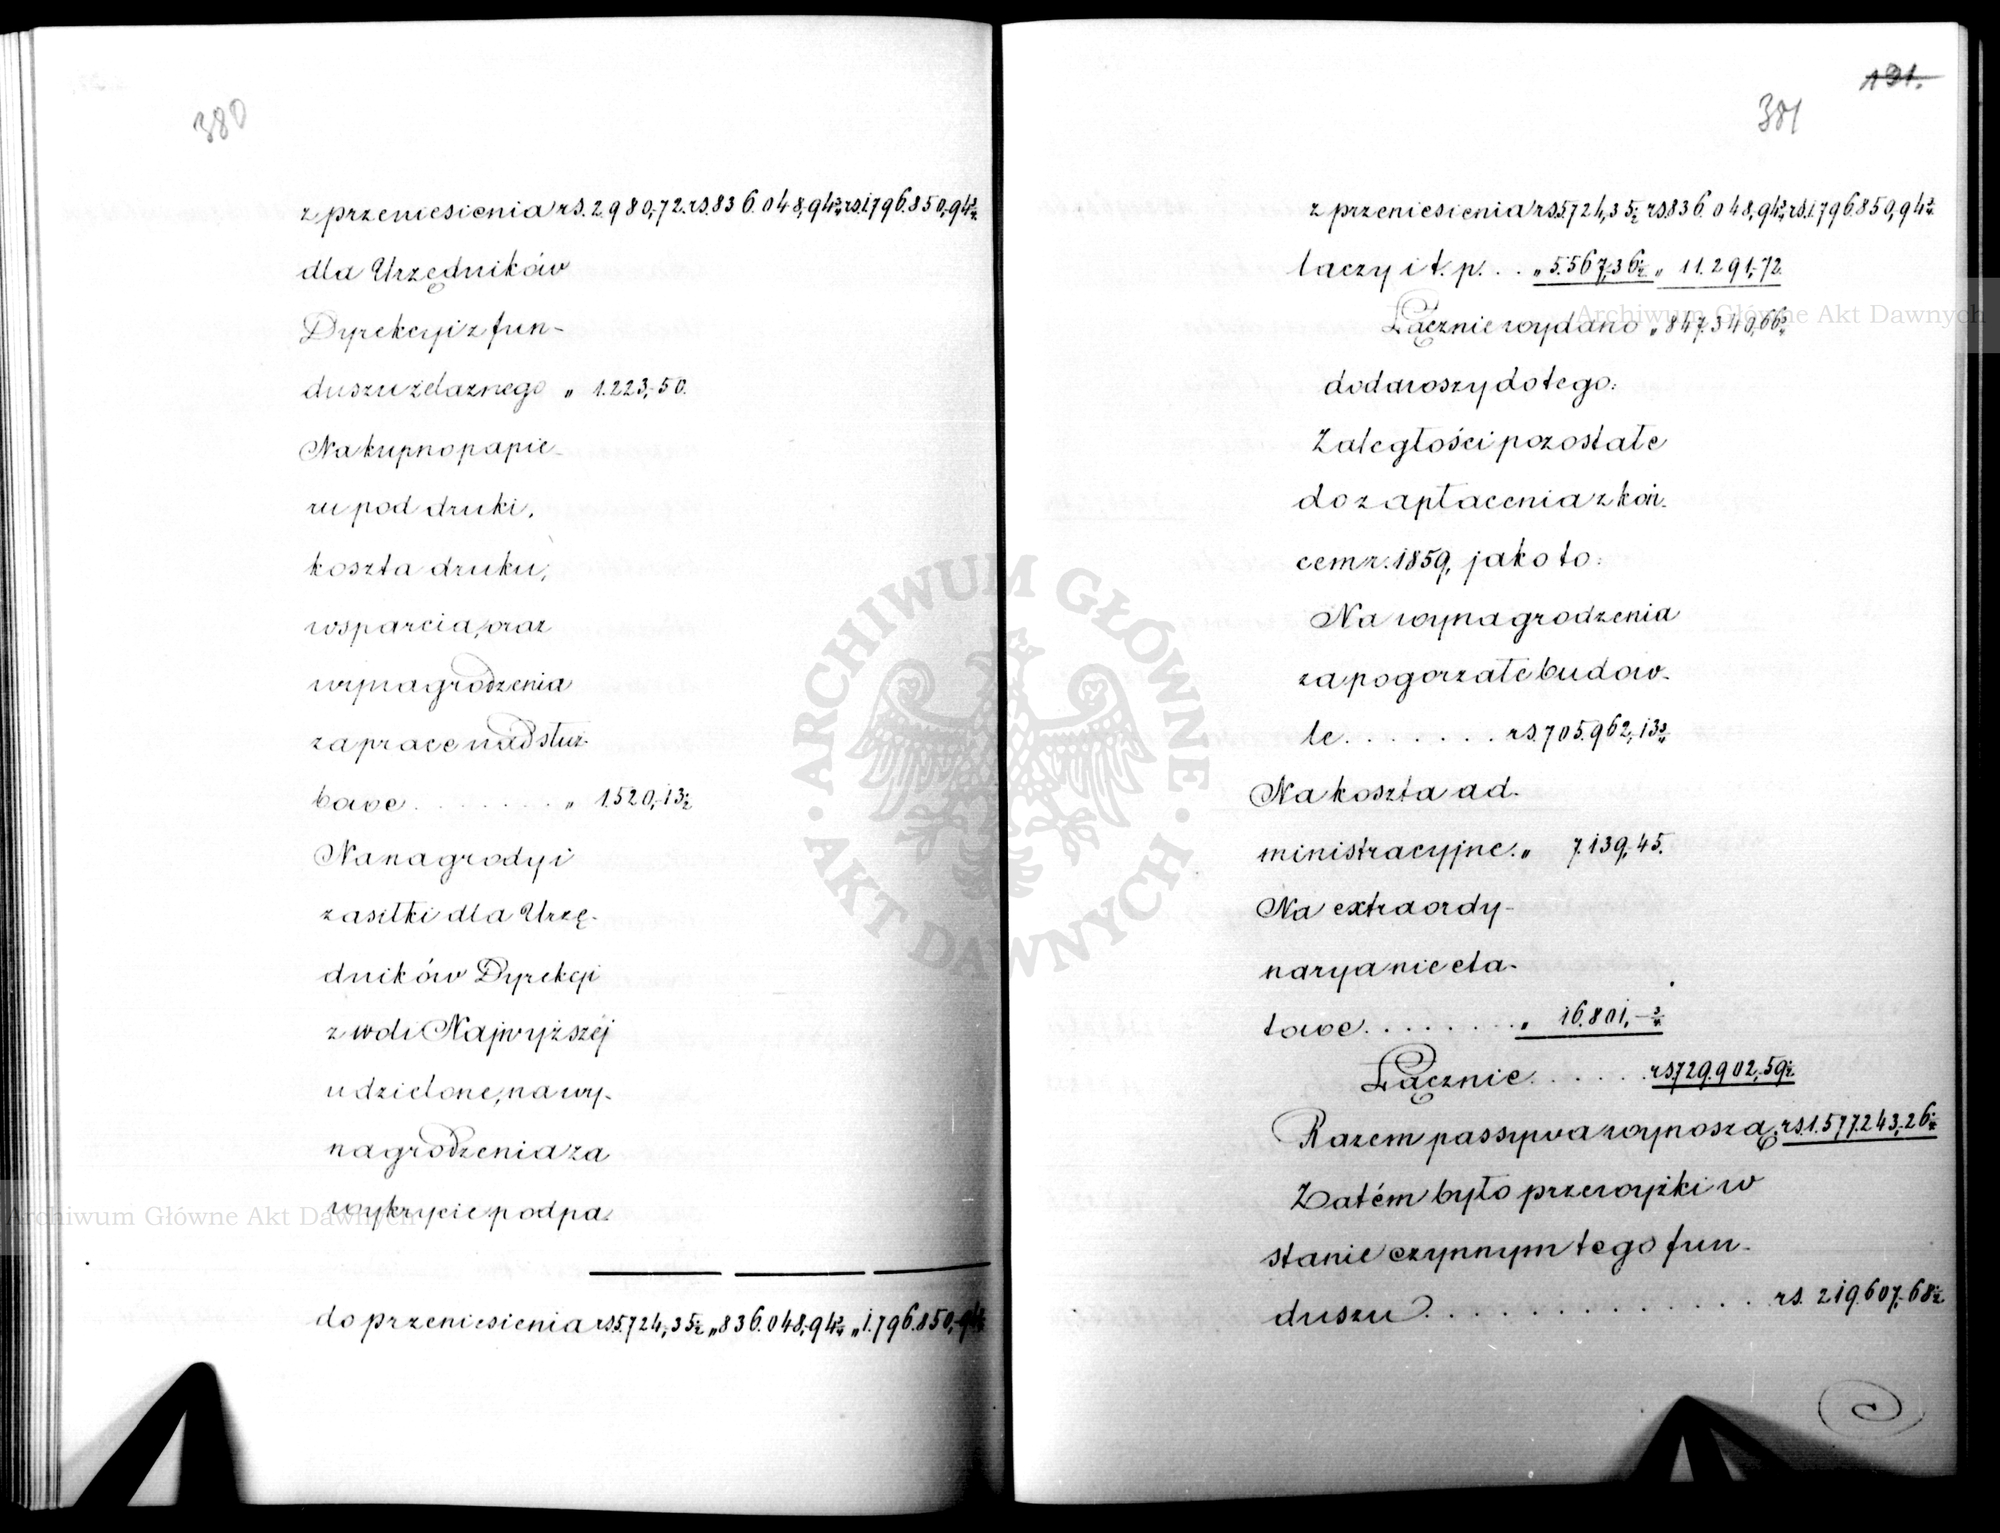 380
z przeniesienia rs. 2.980,72. rs. 836.048,94¾ rs. 1.796.850,94¾
dla Urzędników
Dyrekcyi z fun-
duszu żelaznego „ 1.223,-50.
Na kupno papie-
ru pod druki,
koszta druku,
wsparcia, oraz
wynagrodzenia
za prace nadsłuż-
bowe . . . . . . . . . „ 1.520,-13½
Na nagrody i
zasiłki dla Urzę-
dników Dyrekcji
z woli Najwyższej
udzielone, na wy-
nagrodzenia za
wykrycie podpa-
do przeniesienia rs. 5.724,-35½ „ 836.048,-94¾ „ 1.796.850,-94¾
131.
381
z przeniesienia rs. 5.724,35½ rs. 836.048,94¾ rs. 1.796.850,94¾
laczy i t. p. . . „ 5.567,36½ „ 11.291,-72.
Łącznie wydano „ 847.340,66¾
dodawszy do tego:
Zaległości pozostałe
do zapłacenia z koń-
cem r. 1859, jako to:
Na wynagrodzenia
za pogorzałe budow-
le . . . . . . . rs. 705.962,-13¾
Na koszta ad-
ministracyjne . „ 7.139,-45.
Na extraordy-
narya nie eta-
towe . . . . . . . „ 16.801,-¾
Łącznie . . . . . . rs. 729.902,-59½
Razem passywa wynoszą rs. 1.577.243,-26¼
Zatém było przewyżki w
stanie czynnym tego fun-
duszu . . . . . . . . . . . . . . rs. 219.607,-68½
Archiwum Główne Akt Dawnych
Archiwum Główne Akt Dawnych
ARCHIWUM GŁÓWNE · AKT DAWNYCH ·